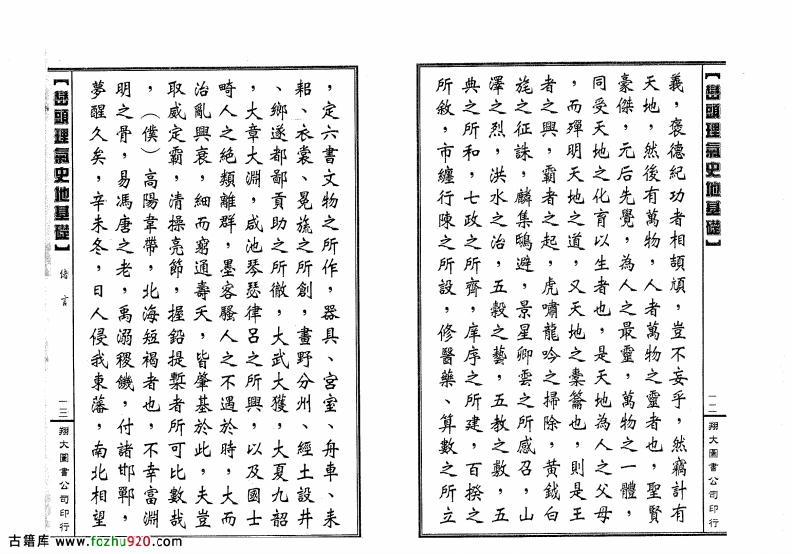 【巒頭理氣史地基礎】
一二
翔大圖書公司印行
義，褒德紀功者相頡頏，豈不妄乎，然竊計有
天地，然後有萬物，人者萬物之靈者也，聖賢
豪傑，元后先覺，為人之最靈，萬物之一體，
同受天地之化育以生者也，是天地為人之父母
，而殫明天地之道，又天地之橐籥也，則是王
者之興，霸者之起，虎嘯龍吟之掃除，黃鉞白
旄之征誅，麟集鴟避，景星卿雲之所感召，山
澤之烈，洪水之治，五穀之藝，五教之敷，五
典之所和，七政之所齊，庠序之所建，百揆之
所敘，市纏行陳之所設，修醫藥、算數之所立
，定六書文物之所作，器具、宮室、舟車、耒
耜、衣裳、冕旒之所創，畫野分州、經土設井
、鄉遂都鄙貢助之所徹，大武大獲，大夏九韶
，大章大淵，咸池琴瑟律呂之所興，以及國士
畸人之絕類離群，墨客騷人之不遇於時，大而
治亂興衰，細而窮通壽夭，皆肇基於此，夫豈
取威定霸，清操亮節，握鉛提槧者所可比數哉
，（僕）高陽韋帶，北海短褐者也，不幸富淵
明之骨，易馮唐之老，禹溺稷饑，付諸邯鄲，
夢醒久矣，辛未冬，日人侵我東藩，南北相望
【巒頭理氣史地基礎】
緒言
一三
翔大圖書公司印行
古籍库 www.fozhu920.com